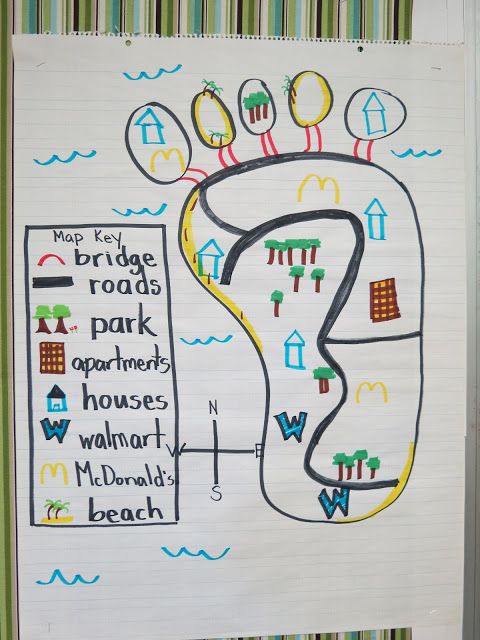 Map Key
bridge
roads
park
apartments
houses
W walmart
M McDonald's
beach
N
W E
S
M
M
M
W
W